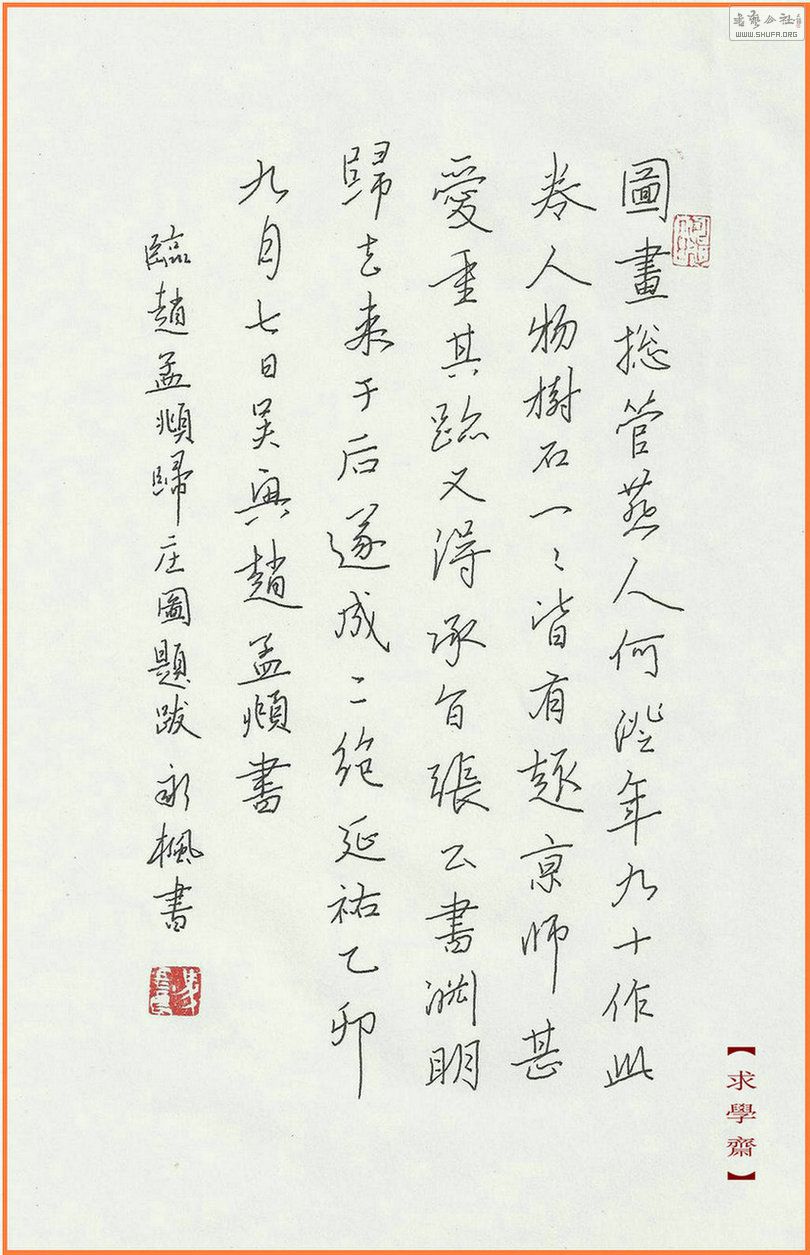 圖畫捴管燕人何澄年九十作此
卷人物樹石一〻皆有趣京師甚
愛重其跡又得承旨張公書淵明
歸去来于后遂成二絶延祐乙卯
九月七日吴興趙孟頫書
臨趙孟頫歸庄圖題跋 永楓書
【求學齋】
書藝公社
WWW.SHUFA.ORG